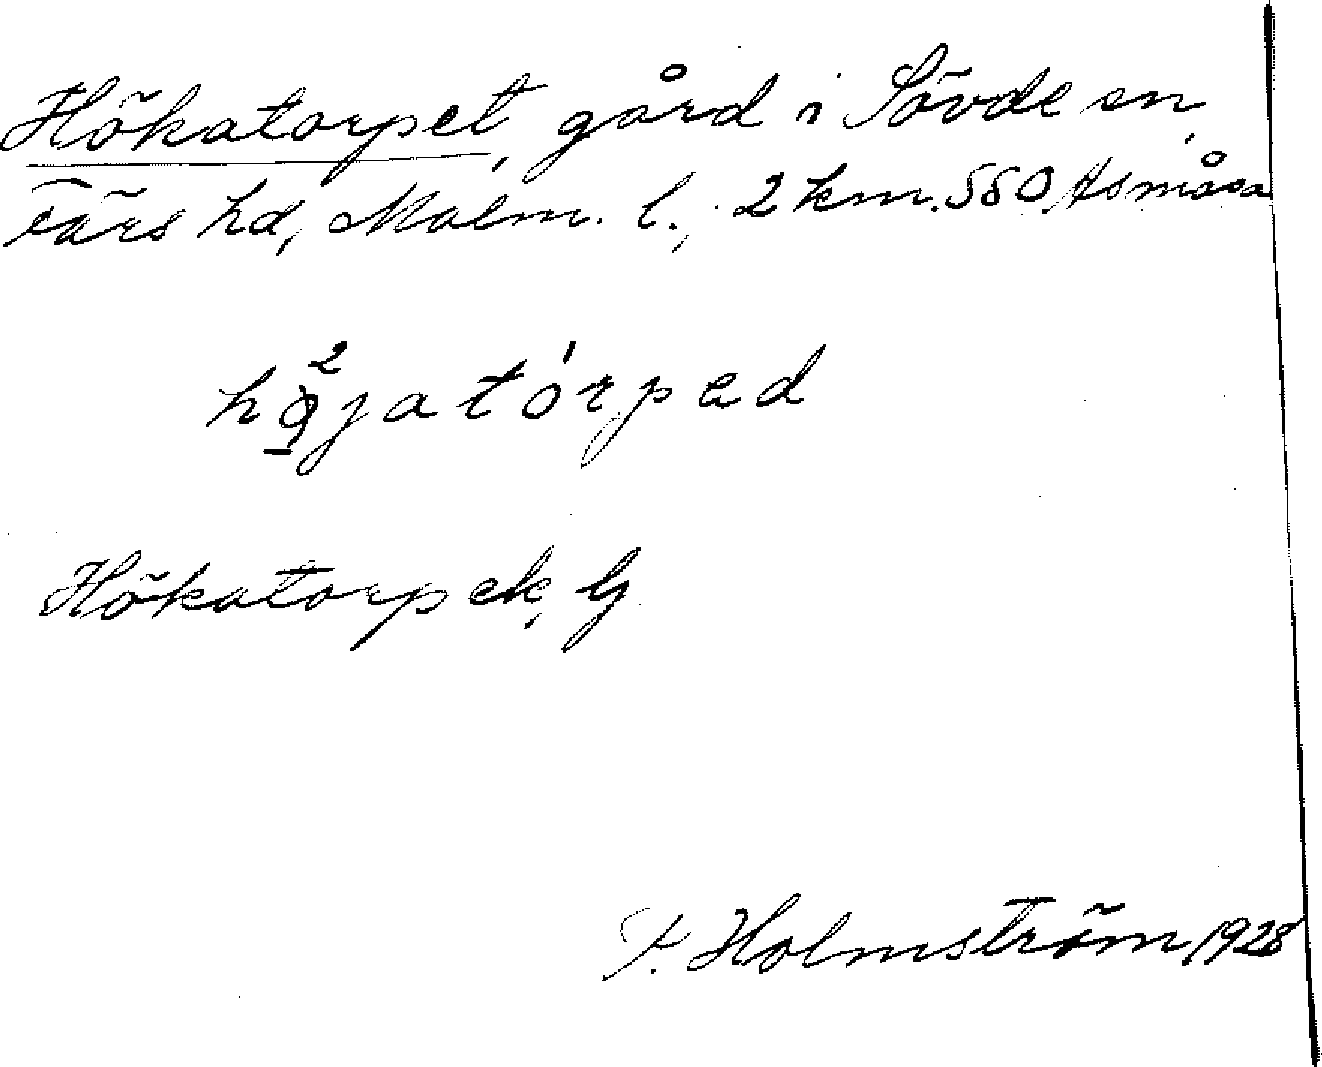 Hökatorpet, gård i Sövde sn,
Färs hd, Malm. l., 2 km. SSO Åsmåsa
hö̱²jatórpad
Hökatorpek, Gj
F. Holmström 1928